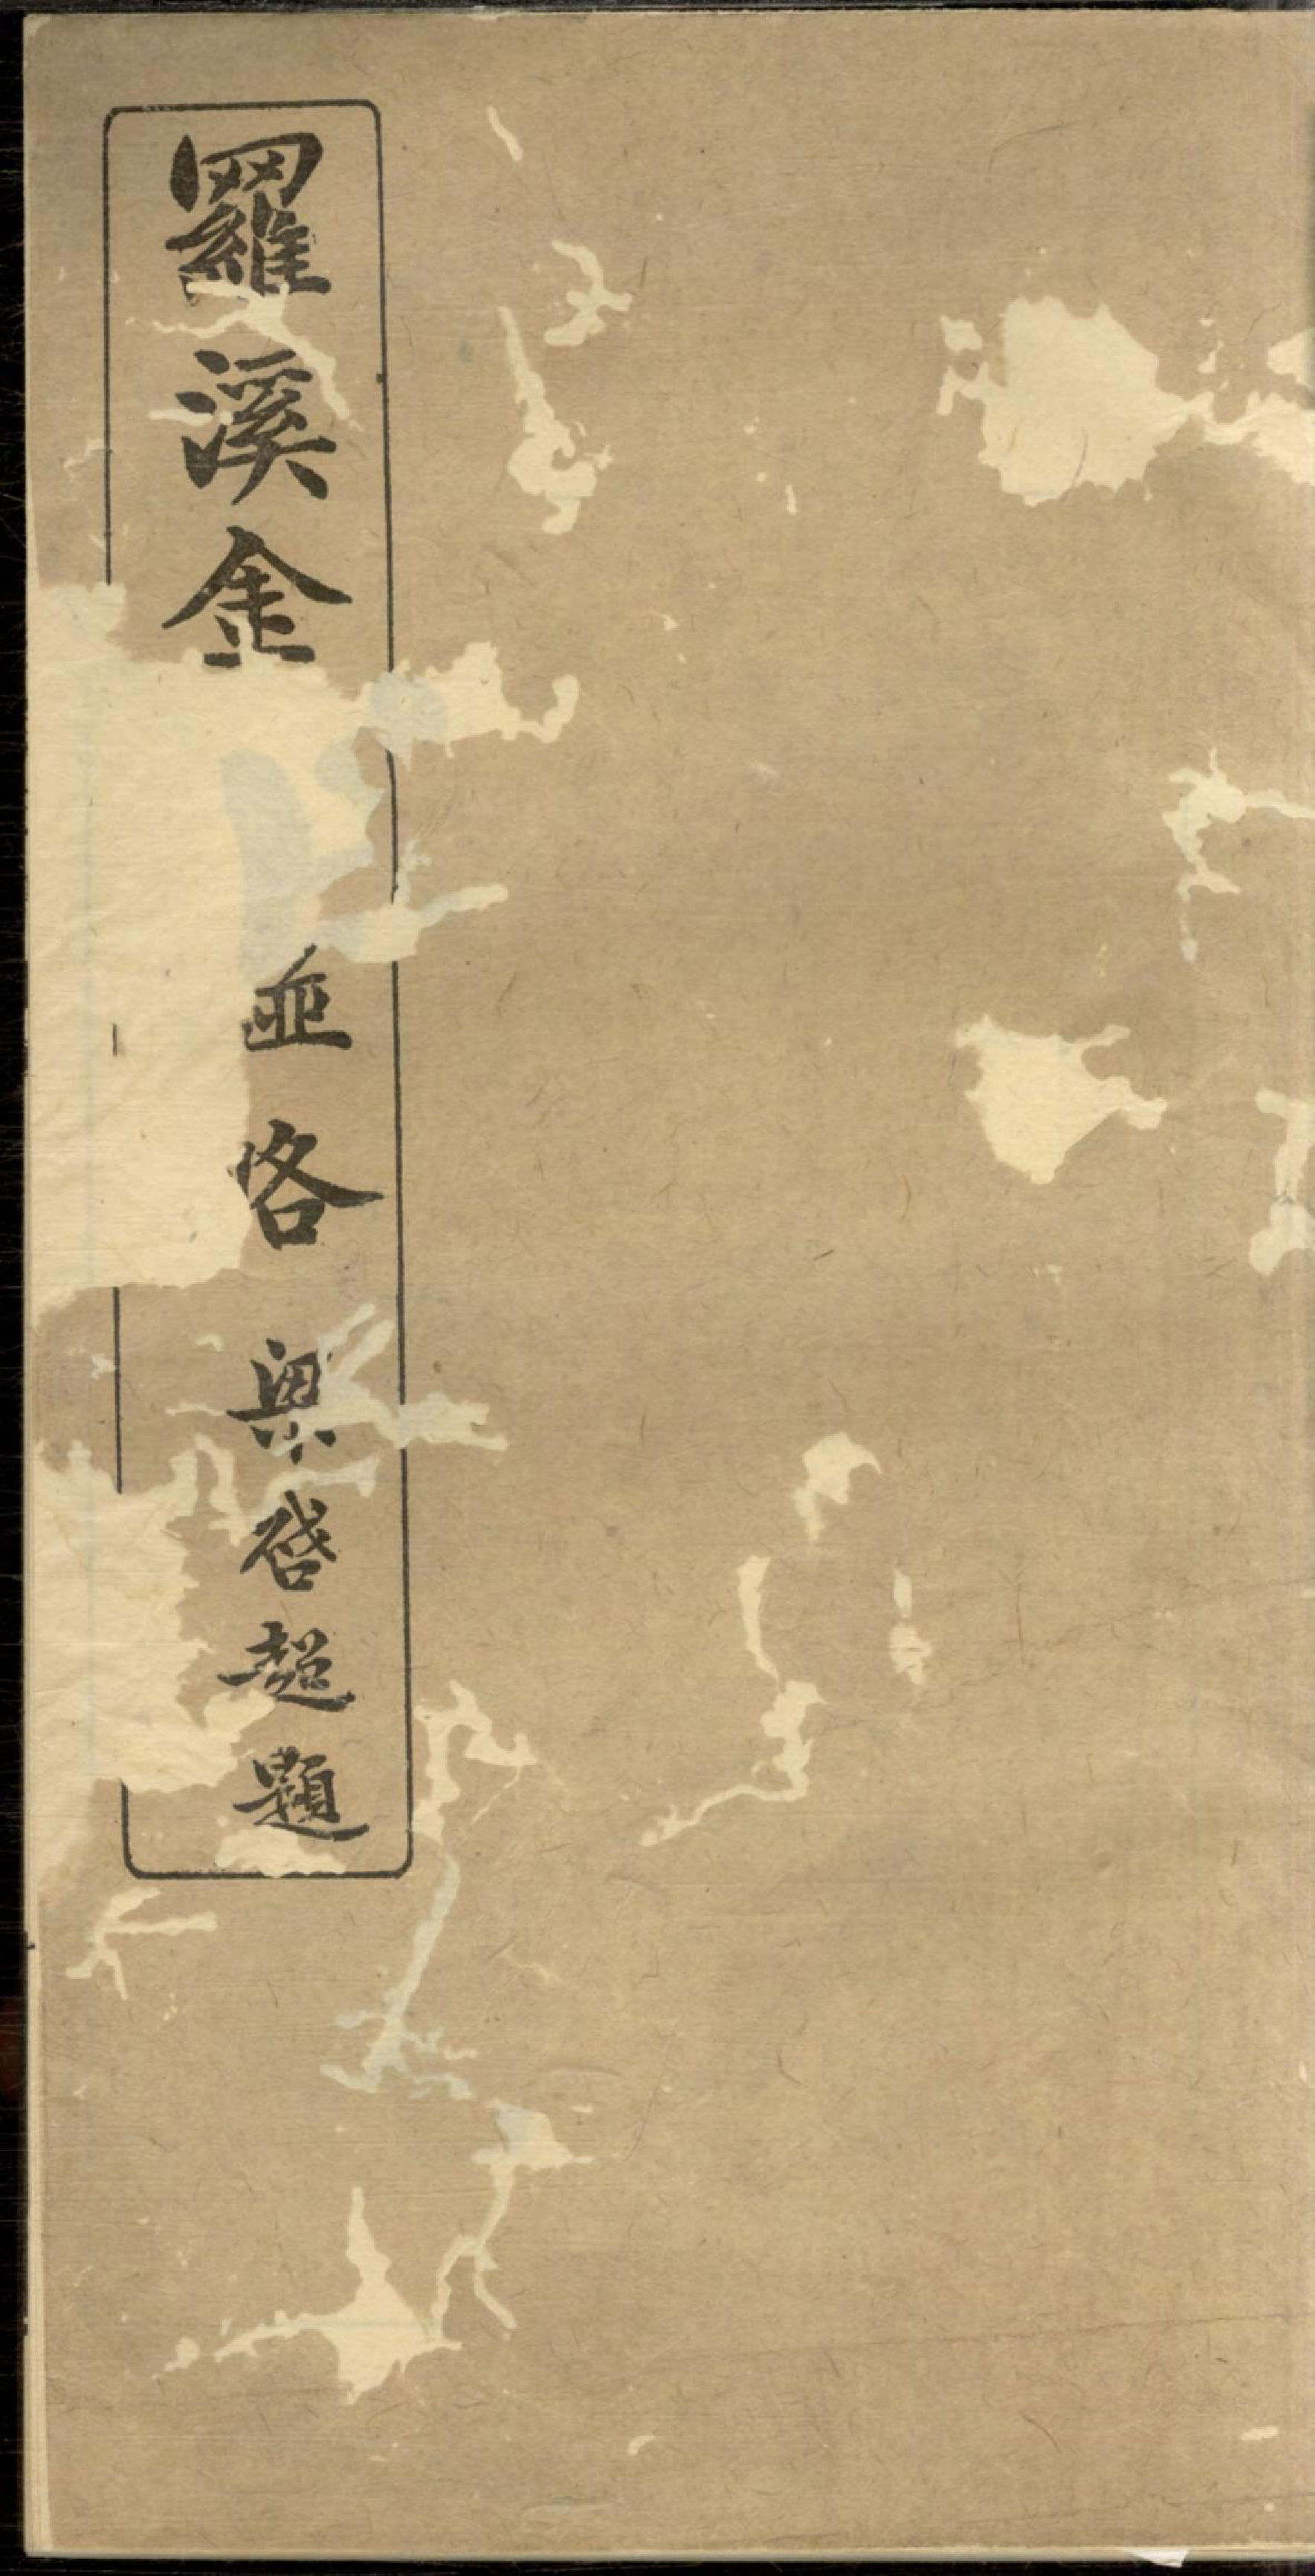 羅溪金略梁啓超題